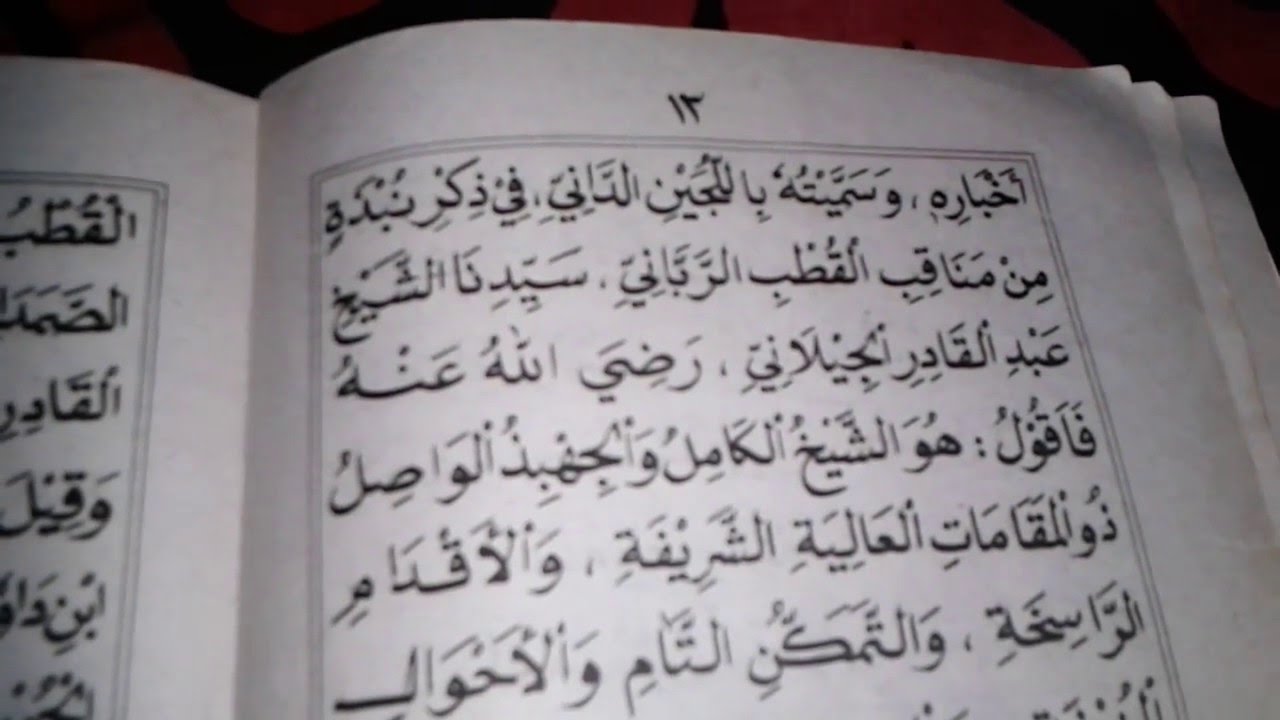 ١٣
أَخْبَارِهِ ، وَسَمَّيْتُهُ بِاللُّجَيْنِ الدَّانِيِّ، فِيْ ذِكْرِ نُبْذَةٍ
مِنْ مَنَاقِبِ الْقُطْبِ الرَّبَّانِيِّ ، سَيِّدِنَا الشَّيْخِ
عَبْدِ الْقَادِرِ الْجِيْلَانِيِّ ، رَضِيَ اللهُ عَنْهُ
فَأَقُوْلُ : هُوَ الشَّيْخُ الْكَامِلُ وَالْجِهْبِذُ الْوَاصِلُ
ذُو الْمَقَامَاتِ الْعَالِيَةِ الشَّرِيْفَةِ ، وَالْأَقْدَامِ
الرَّاسِخَةِ ، وَالتَّمَكُّنِ التَّامِ وَالْأَحْوَالِ
الْقُطْبُ
الْقَادِرِ
وَقِيْلَ
ابْنِ